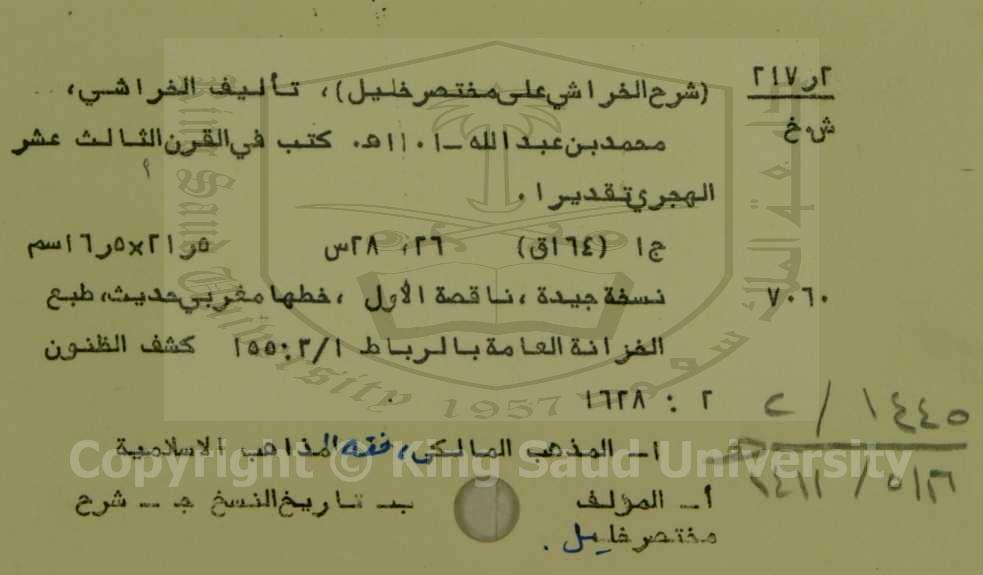 ٢ر٢١٧ (شرح الخراشي على مختصر خليل)، تأليف الخراشي،
ش.خ محمد بن عبد الله -١١٠١هـ. كتب في القرن الثالث عشر
الهجري تقديرا.
ج١ (١٦٤ق) ٢٦، ٢٨س ٥ر٢١×٥ر١٦سم
٧٠٦٠ نسخة جيدة، ناقصة الأول، خطها مغربي حديث، طبع
الخزانة العامة بالرباط ٣/١: ١٥٥ كشف الظنون
٢ : ١٦٢٨
١- المذهب المالكي، فقه المذاهب الاسلامية
أ- المؤلف ب- تاريخ النسخ ج- شرح
مختصر خليل.
١٤٤٥ / ٢
Copyright © King Saud University
King Saud University
جامعة الملك سعود
1957